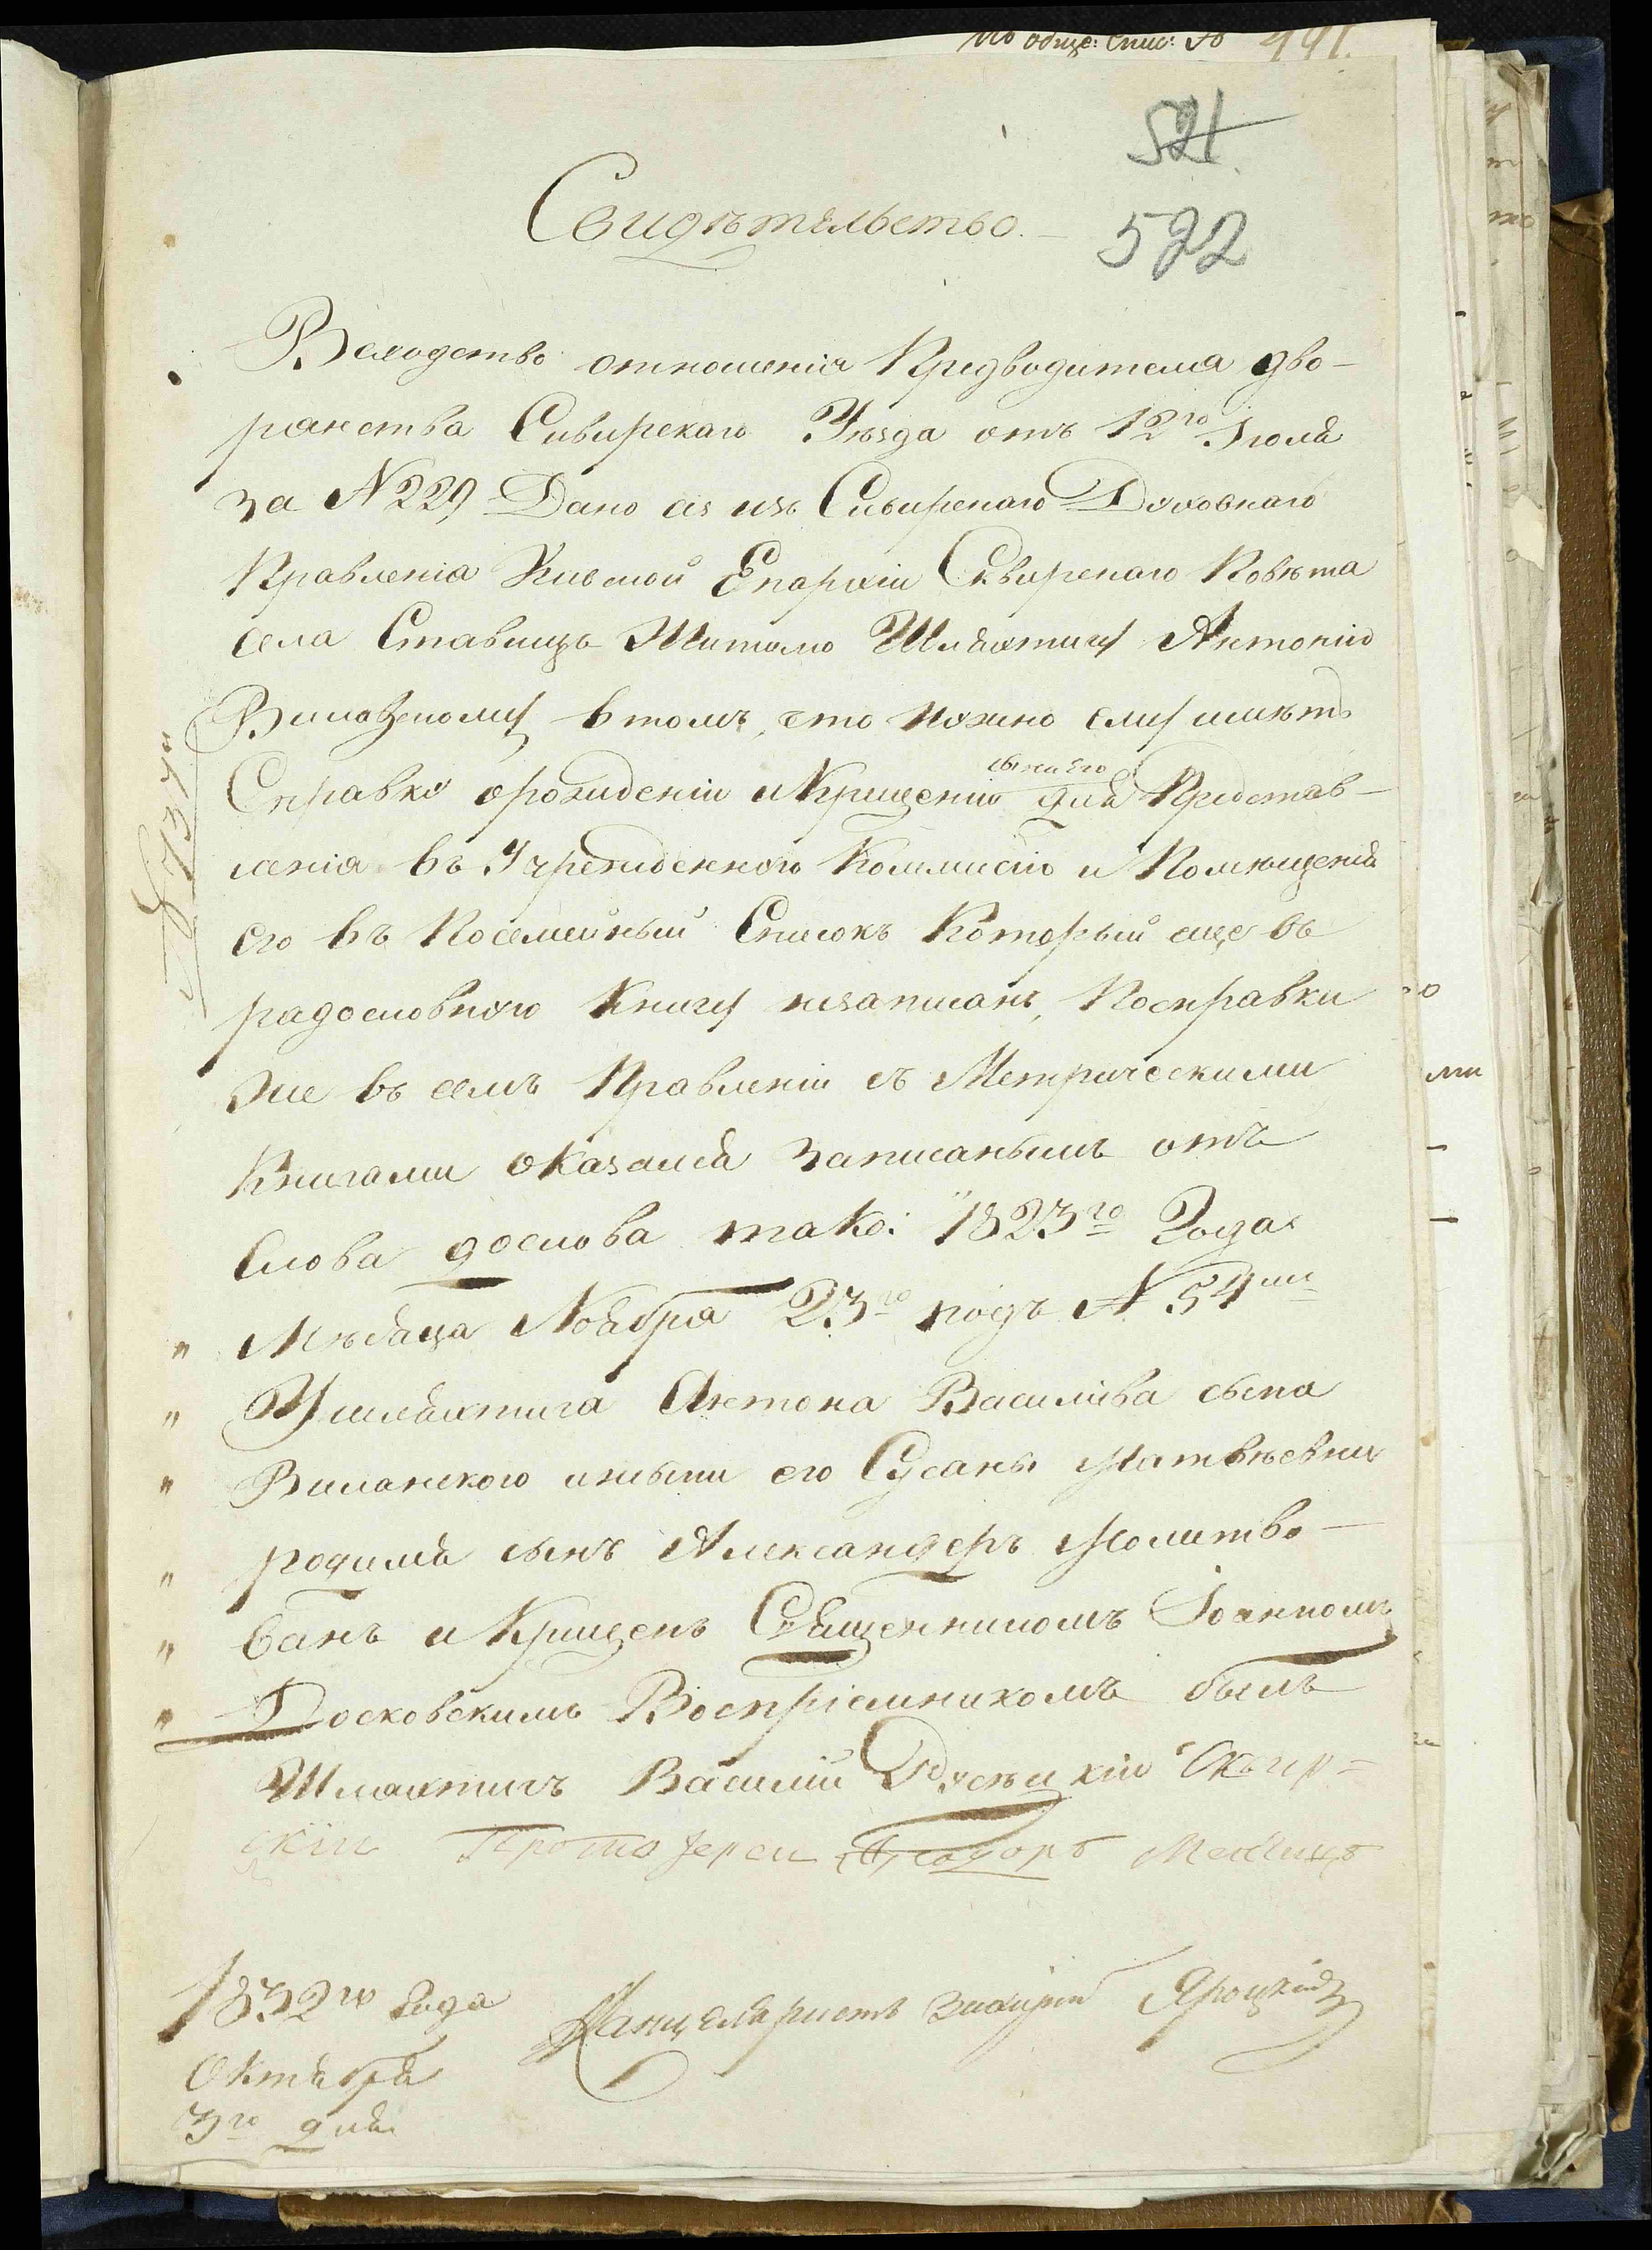 По обще: Спис: № 491.
521.
Свидѣтельство. 522
Вслѣдство отношенія Предводителя дво-
рянства Сквирскаго Уѣзда отъ 12го Іюля
за N 229 Дано сіе изъ Сквирскаго Духовнаго
Правленія Киевской Епархіи Сквирскаго Повѣта
села Ставищъ Шляхтичу Антонію
в томъ, что нужно ему имѣть
Справку орождении иКрещеніи сына его для Представ-
ленія въ Учрежденную Коммисію и Помѣщенія
его въ Посемейный Списокъ Который еще въ
радословную Книгу незаписанъ, Посправки
же въ семъ Правленіи съ Метрическими
Книгами оказался записанымъ отъ
слова дослова тако: "1823го Года
" Мѣсяца Ноября 23го подъ N 54мъ
" Ушляхтича Антона Василіева сына
" Виланского ижены его Сусаны Матвѣевны
" родился сынъ Александеръ Молитво-
" ванъ и Крещенъ Священникомъ Іоанномъ
" Восприемникомъ былъ
Шляхтичъ Василій Сквир-
скій Протоіерей
1832го Года
Октября
3го дня
Канцеляристъ Яроцкій
№ 737й